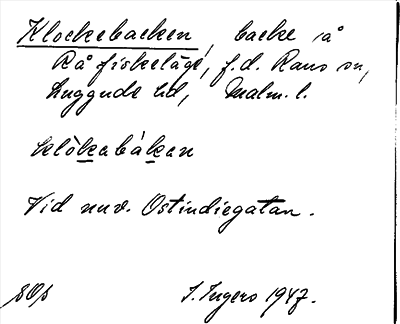 Klockebacken, backe å
Rå fiskeläge, f.d. Raus sn,
Luggude hd, Malm. l.
klòkebàken
Vid nuv. Ostindiegatan.
I. Ingers 1947.